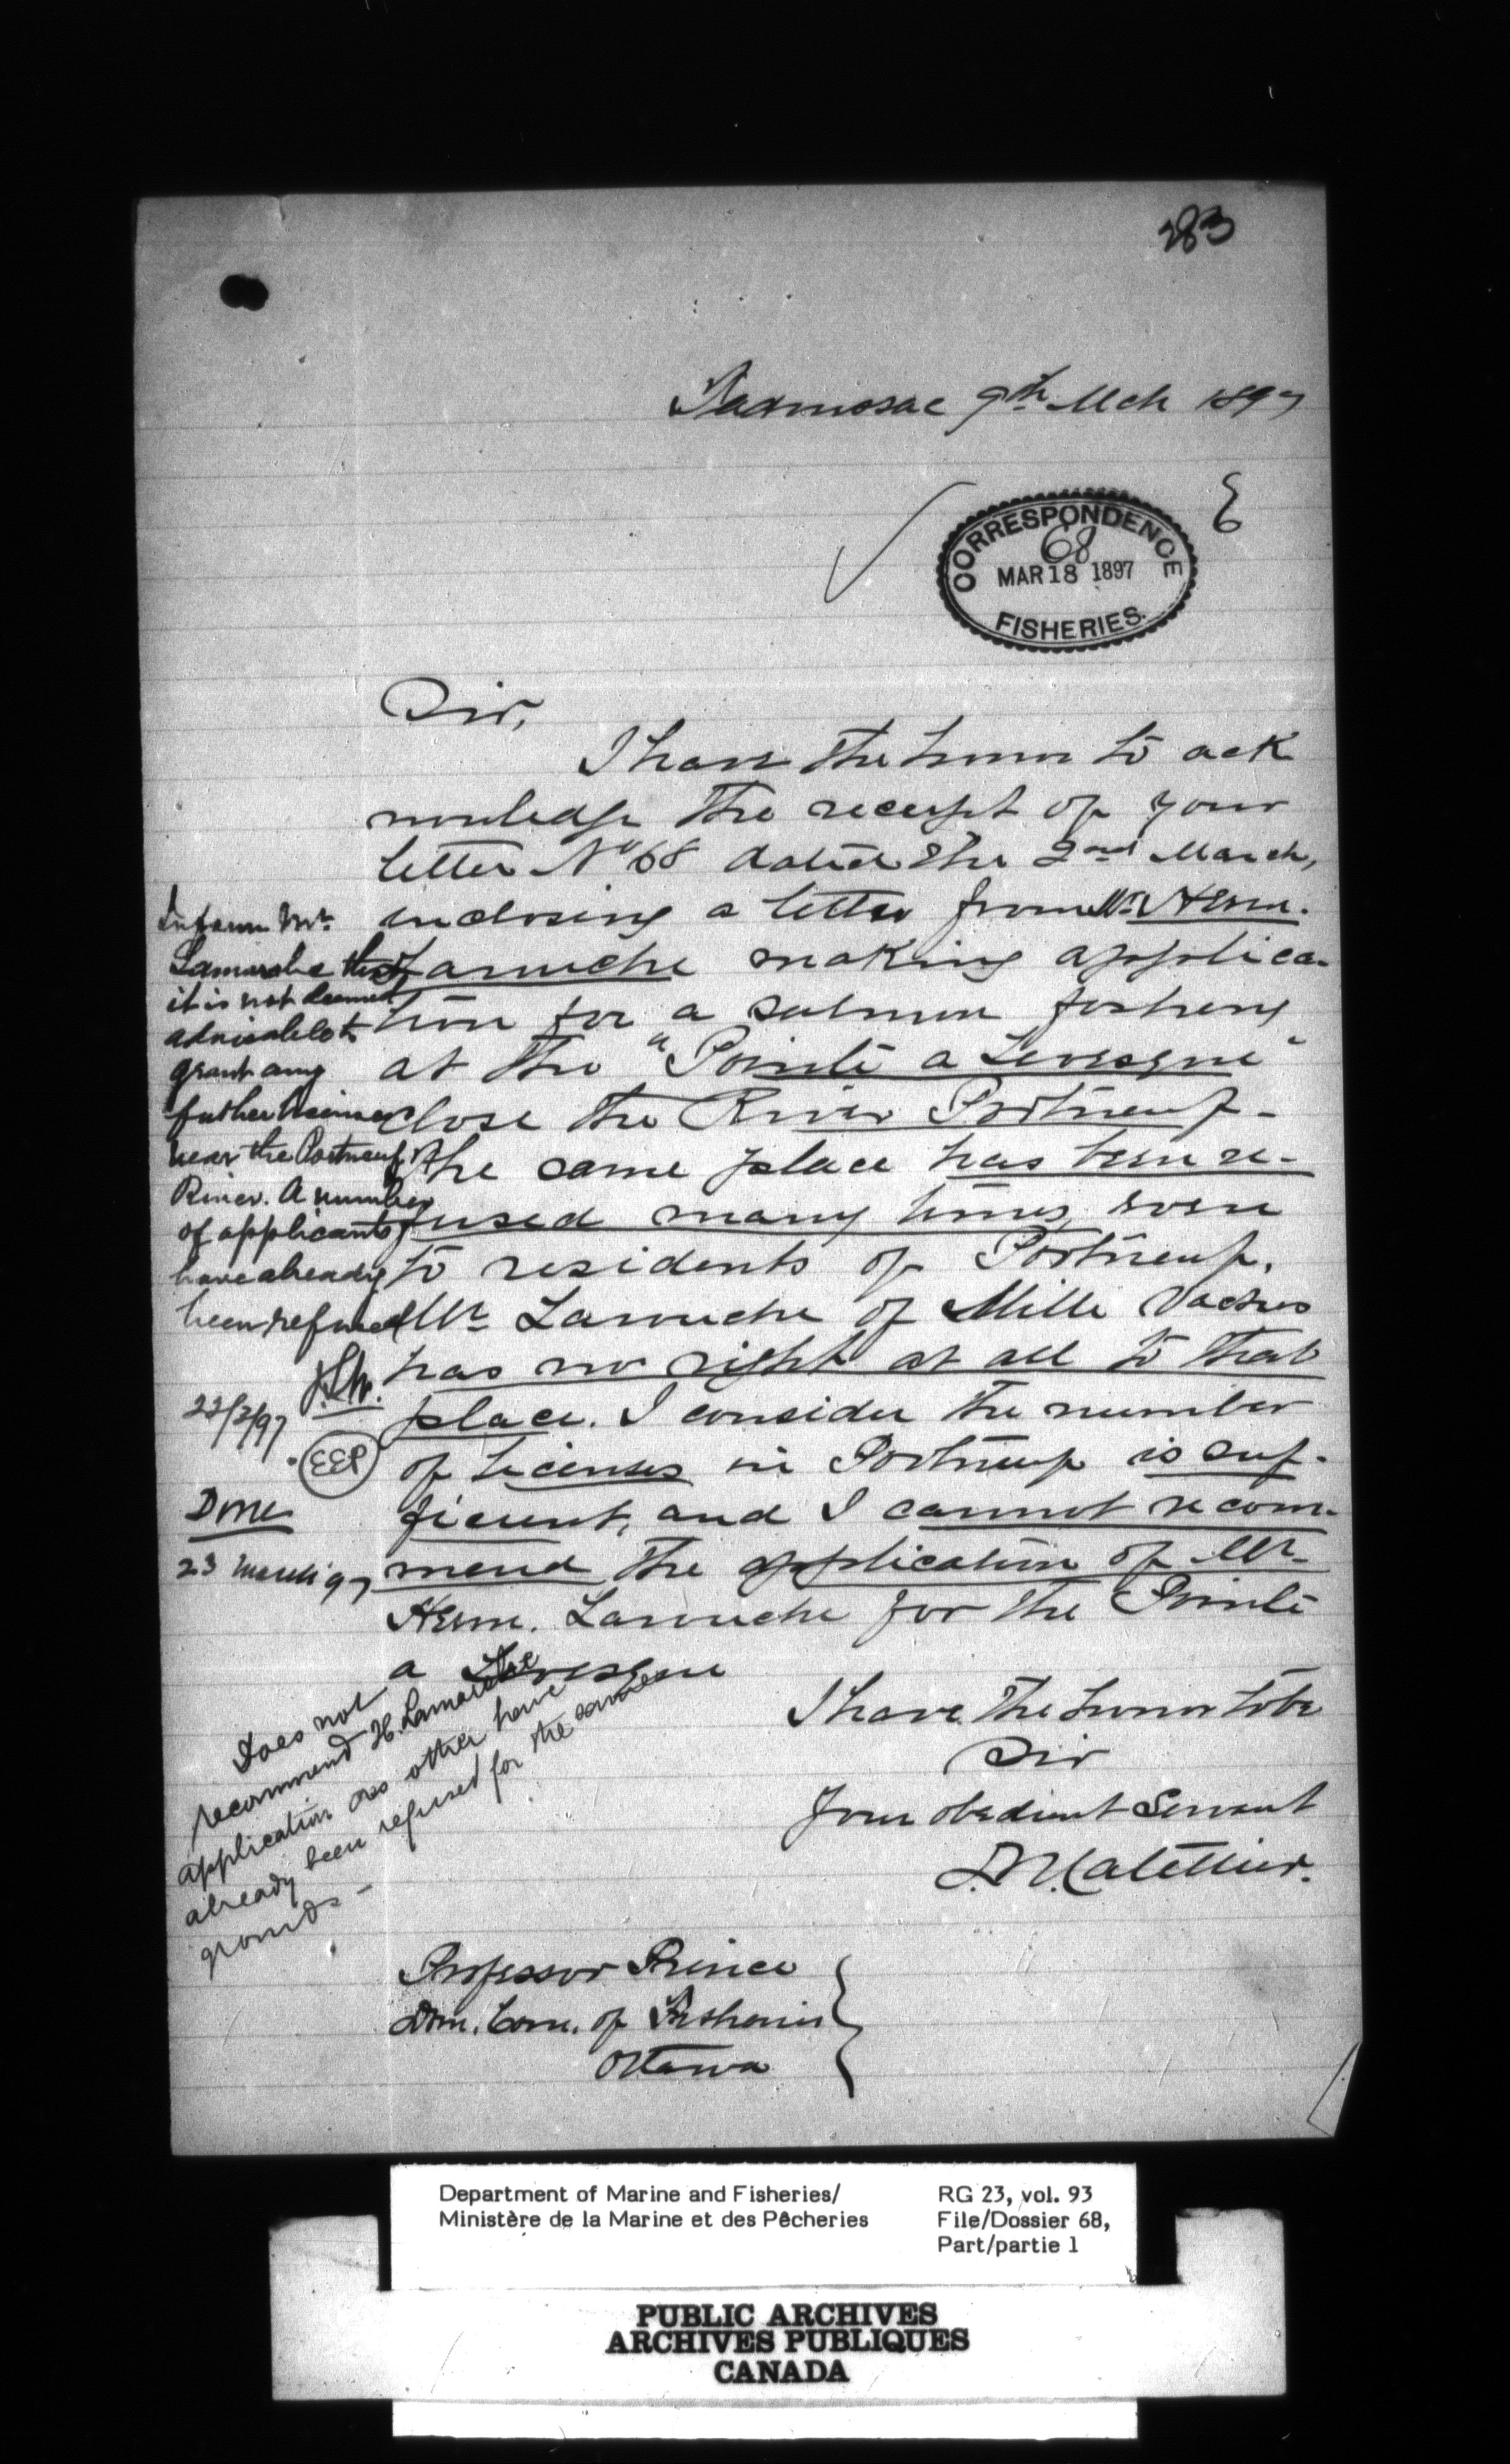 283
Tadousac 9th Mch 1897
E
CORRESPONDENCE
68
MAR 18 1897
FISHERIES.
Sir,
I have the honor to ack
nowledge the receipt of your
letter No 68 dated the 2nd March,
inclosing a letter from Mr Herm.
Larouche making applica-
tion for a salmon fishery
at the "Pointe a Levesque"
close the River Portneuf-
The same place has been re-
fused many times, even
to residents of Portneuf.
Mr Larouche of Mille Vaches
has no right at all to that
place. I consider the number
of licenses in Portneuf is suf-
ficient, and I cannot recom-
mend the application of Mr
Herm. Larouche for the Pointe
a Levesque
I have the honor to be
Sir
Your obedient Servant
L.N. Catellier.
Professor Prince
Dom. Com. of Fisheries
Ottawa
Inform Mr.
Lamarche that
it is not deemed
advisable to
grant any
futher licenses
near the Portneuf
River. A number
of applicants
have already
been refused
22/3/97
EEP
Done
23 March 97
Does not
recommend H. Lamarche
application as other have
already been refused for the same
grounds -
Department of Marine and Fisheries/
Ministère de la Marine et des Pêcheries
RG 23, vol. 93
File/Dossier 68,
Part/partie 1
PUBLIC ARCHIVES
ARCHIVES PUBLIQUES
CANADA